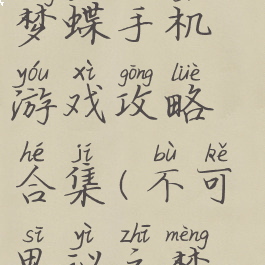 梦蝶手机
yóu xì gōng lüè
游戏攻略
hé jí bù kě
合集(不可
sī yì zhī mèng
思议之梦